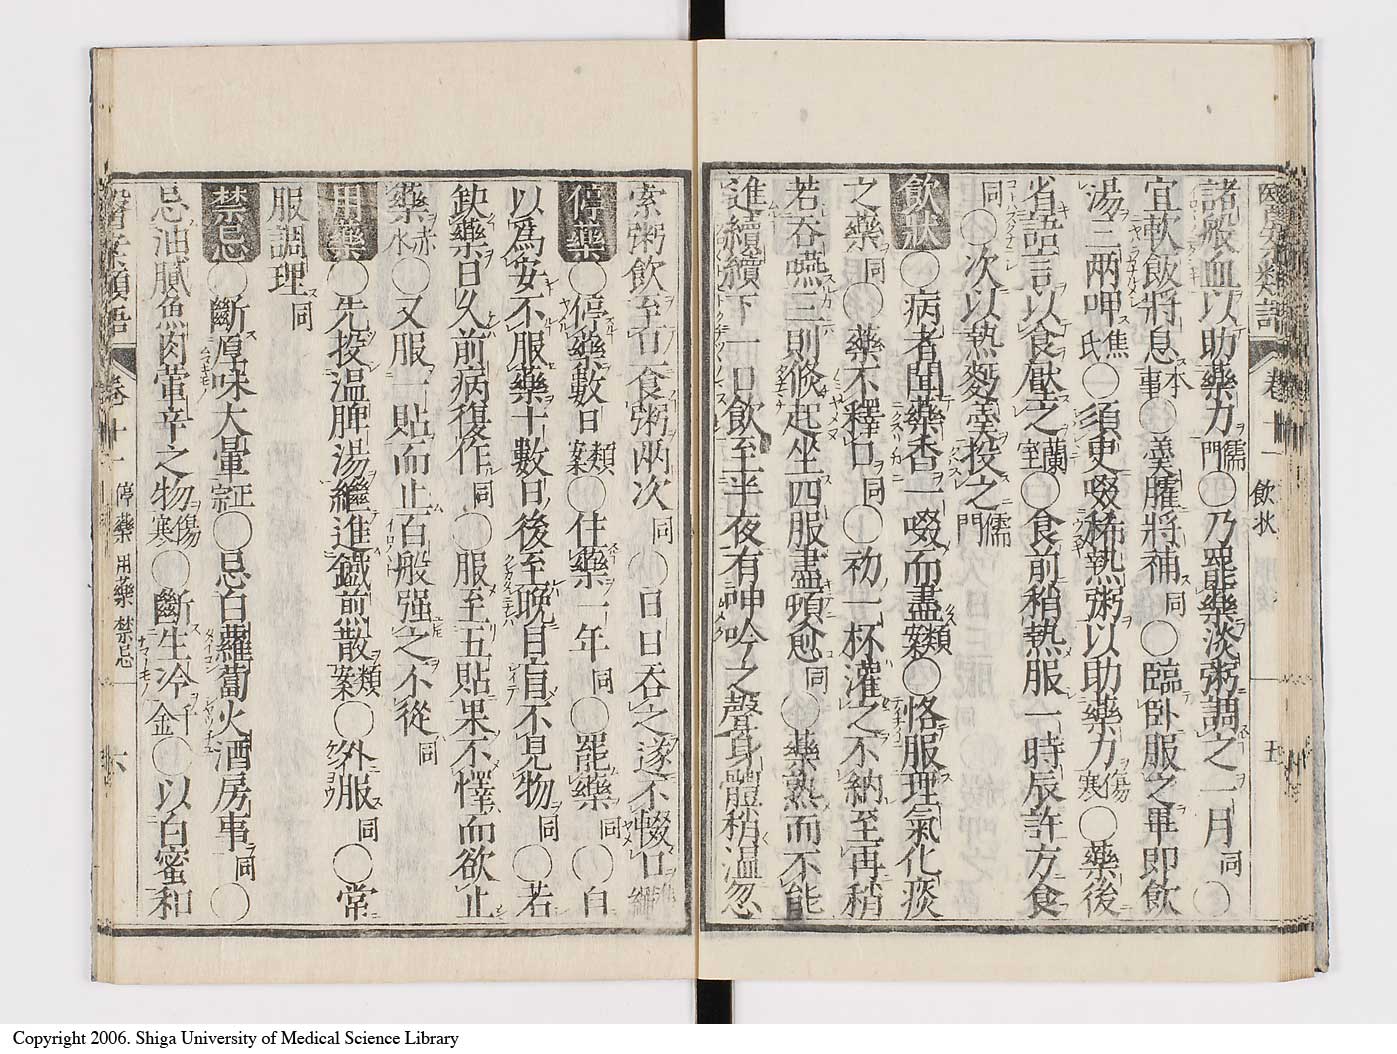 諸般血以助藥力儒門○乃罷藥淡粥調之一月同○
宜軟飯將息本事○羹臛將補同○臨卧服之畢即飲
湯三兩呷焦氏○須臾啜稀熱粥以助藥力傷寒○藥後
省語言以食壓之蘭室○食前稍熱服一時辰許方食
同○次以熱麪羹投之儒門
飲狀○病者聞藥香一啜而盡類案○恪服理氣化痰
之藥同○藥不釋口同○初一杯灌之不納至再稍
若吞嚥三則倐起坐四服盡頓愈同○藥熟而不能
進續續下一口飲至半夜有呻吟之聲身體稍溫忽
飲狀
五
索粥飲至日食粥兩次同○日日吞之遂不輟口
停藥○停藥數日類案○住藥一年同○罷藥同○自
以為安不服藥十數日後至晩目盲不見物同○若
缺藥日久前病復作同○服至五貼果不懌而欲止
藥赤水○又服一貼而止百般强之不從同
用藥○先投溫脾湯繼進鐵煎散類案○外服同○常
服調理同
禁忌○斷厚味大葷正宗○忌白蘿蔔火酒房事同○
忌油膩魚肉葷辛之物傷寒○斷生冷千金○以白蜜和
卷十一 停藥 用藥 禁忌
六
Copyright 2006. Shiga University of Medical Science Library